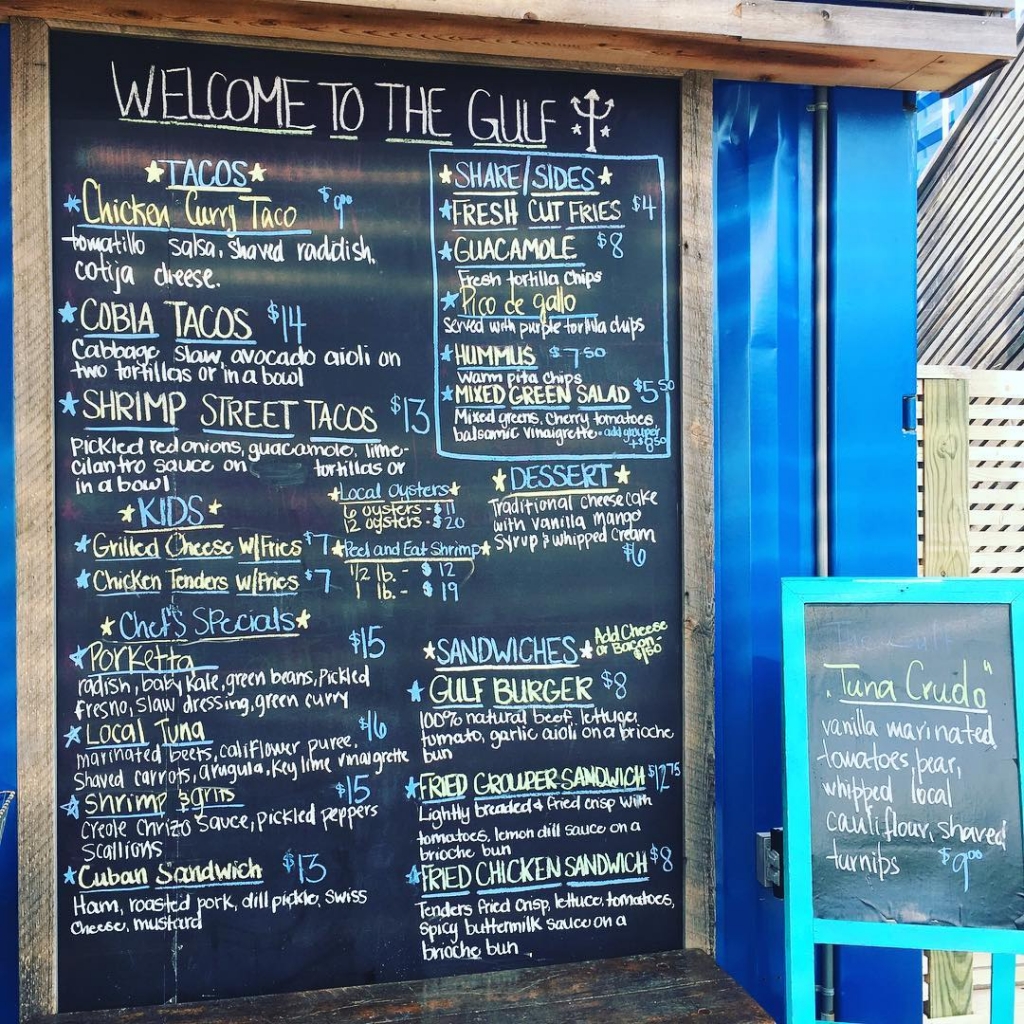 WELCOME TO THE GULF
TACOS
Chicken Curry Taco $9.00
tomatillo salsa, shaved raddish,
cotija cheese.
COBIA TACOS $14
Cabbage slaw, avocado aioli on
two tortillas or in a bowl
SHRIMP STREET TACOS $13
Pickled red onions, guacamole, lime-
cilantro sauce on tortillas or
in a bowl
KIDS
Grilled Cheese W/Fries $7
Chicken Tenders w/Fries $7
Local Oysters
6 oysters - $11
12 oysters - $20
Peel and Eat Shrimp
1/2 lb. - $12
1 lb. - $19
SHARE/SIDES
FRESH CUT FRIES $4
GUACAMOLE $8
Fresh tortilla Chips
Pico de gallo
Served with purple tortilla chips
HUMMUS $7.50
Warm pita Chips
MIXED GREEN SALAD $5.50
Mixed greens, Cherry tomatoes,
balsamic vinaigrette - add grouper
+$8.50
DESSERT
Traditional cheesecake
with vanilla mango
Syrup & whipped cream
$6
Chef's Specials
Porketta $15
radish, baby kale, green beans, Pickled
fresno, slaw dressing, green curry
Local Tuna $16
marinated beets, califlower puree,
Shaved carrots, arugula, key lime vinaigrette
shrimp & grits $15
Creole Chrizo Sauce, pickled peppers
Scallions
Cuban Sandwich $13
Ham, roasted pork, dill pickle, Swiss
Cheese, mustard
SANDWICHES
Add Cheese
or Bacon -
$1.50
GULF BURGER $8
100% natural beef, lettuce,
tomato, garlic aioli on a brioche
bun
FRIED GROUPER SANDWICH $12.75
Lightly breaded & fried crisp with
tomatoes, lemon dill sauce on a
brioche bun
FRIED CHICKEN SANDWICH $8
Tenders fried crisp, lettuce, tomatoes,
spicy buttermilk sauce on a
brioche bun
"Tuna Crudo"
vanilla marinated
tomatoes, pear,
whipped local
cauliflour, shaved
turnips $9.00